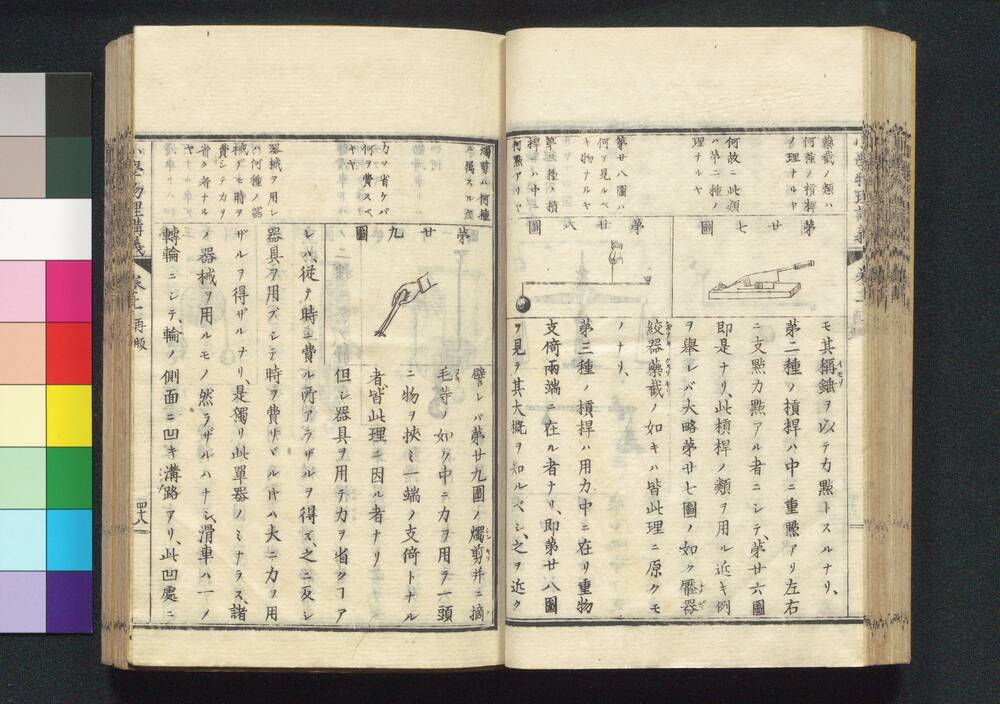 藥截ノ類ハ
何種ノ槓桿
ノ理ナルヤ
何故ニ此類
ハ第二種ノ
理ナルヤ
第廿八圖ハ
何ヲ見ルベ
キ物ナルヤ
第三種ノ槓
桿ハ中ニ
何㸃アリヤ
第廿七圖
第廿八圖
モ其稱錘ヲ以テ力㸃トスルナリ、
第二種ノ槓桿ハ中ニ重㸃アリ左右
ニ支㸃力㸃アル者ニシテ、第廿六圖
即是ナリ、此槓桿ノ類ヲ用ル近キ例
ヲ舉レバ大略第廿七圖ノ如ク
絞器藥截ノ如キハ皆此理ニ原クモ
ノナリ、
第三種ノ槓桿ハ用力中ニ在リ重物
支倚兩端ニ在ル者ナリ、即第廿八圖
ヲ見テ其大概ヲ知ルベシ、之ヲ近ク
燭剪ハ何種
ニ属スル
力ヲ省ケバ
何ヲ費スベ
キヤ
器械ヲ用レ
ハ何種ノ器
械デモ時ヲ
費シテ力ヲ
省ク者ナル
ヤ
第廿九圖
譬レバ第廿九圖ノ燭剪并ニ摘
毛等ノ如ク中ニ力ヲ用ヲ一頭
ニ物ヲ挾ミ一端ノ支倚トナル
者、皆此理ニ因ル者ナリ
但シ器具ヲ用テ力ヲ省クコア
レバ、従テ時ヲ費ル所アラザルヲ得ズ、之ニ反シ
器具ヲ用ズシテ時ヲ費サバル𪜈ハ大ニ力ヲ用
ザルヲ得ザルナリ、是獨リ此單器ノミナラス、諸
ノ器械ヲ用ルモノ然ラザルハナシ、滑車ハ一ノ
轉輪ニシテ、輪ノ側面ニ凹キ溝路アリ、此凹處ニ
小學物理講義
卷二
再版
四十八